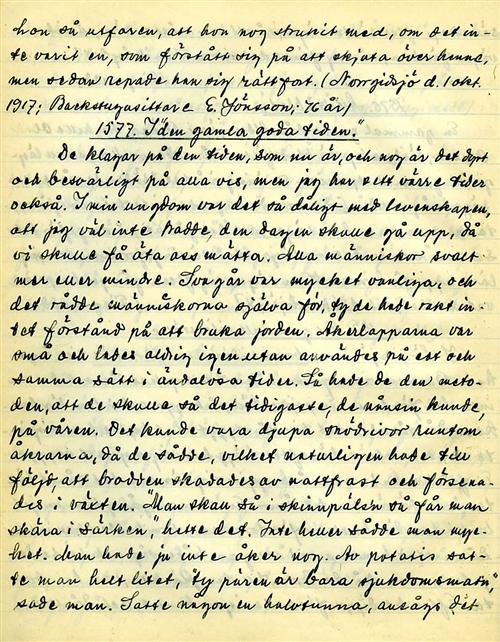 hon så utfaren, att hon nog strukit med, om det in-
te varit en, som förstått sig på att skjuta över henne,
men sedan repade hon sig rätt fort. (Norrgidsjö d. 1 okt.
1917; Backstugusittare E. Jönsson; 76 år)
1577. I "den gamla goda tiden."
De klagar på den tiden, som nu är, och nog är det dyrt
och besvärligt på alla vis, men jag har sett värre tider
också. I min ungdom var det så dåligt med levenskapen,
att jag väl inte trodde, den dagen skulle gå upp, då
vi skulle få äta oss mätta. Alla människor svalt
mer eller mindre. Svagår var mycket vanliga, och
det rådde människorna själva för, ty de hade rakt in-
tet förstånd på att bruka jorden. Åkerlapparna var
små och lades aldrig igen utan användes på ett och
samma sätt i ändalösa tider. Så hade de den meto-
den, att de skulle så det tidigaste, de nånsin kunde,
på våren. Det kunde vara djupa snödrivor runtom
åkrarna, då de sådde, vilket naturligen hade till
följd, att brodden skadades av nattfrost och försena-
des i växten. "Man skau så i skinnpälsin så får man
skära i särken," hette det. Inte heller sådde man myc-
ket. Man hade ju inte åker nog. Av potatis sat-
te man helt litet, "ty pären är bara sjukdomsmatn,"
sade man. Satte någon en halvtunna, ansågs det